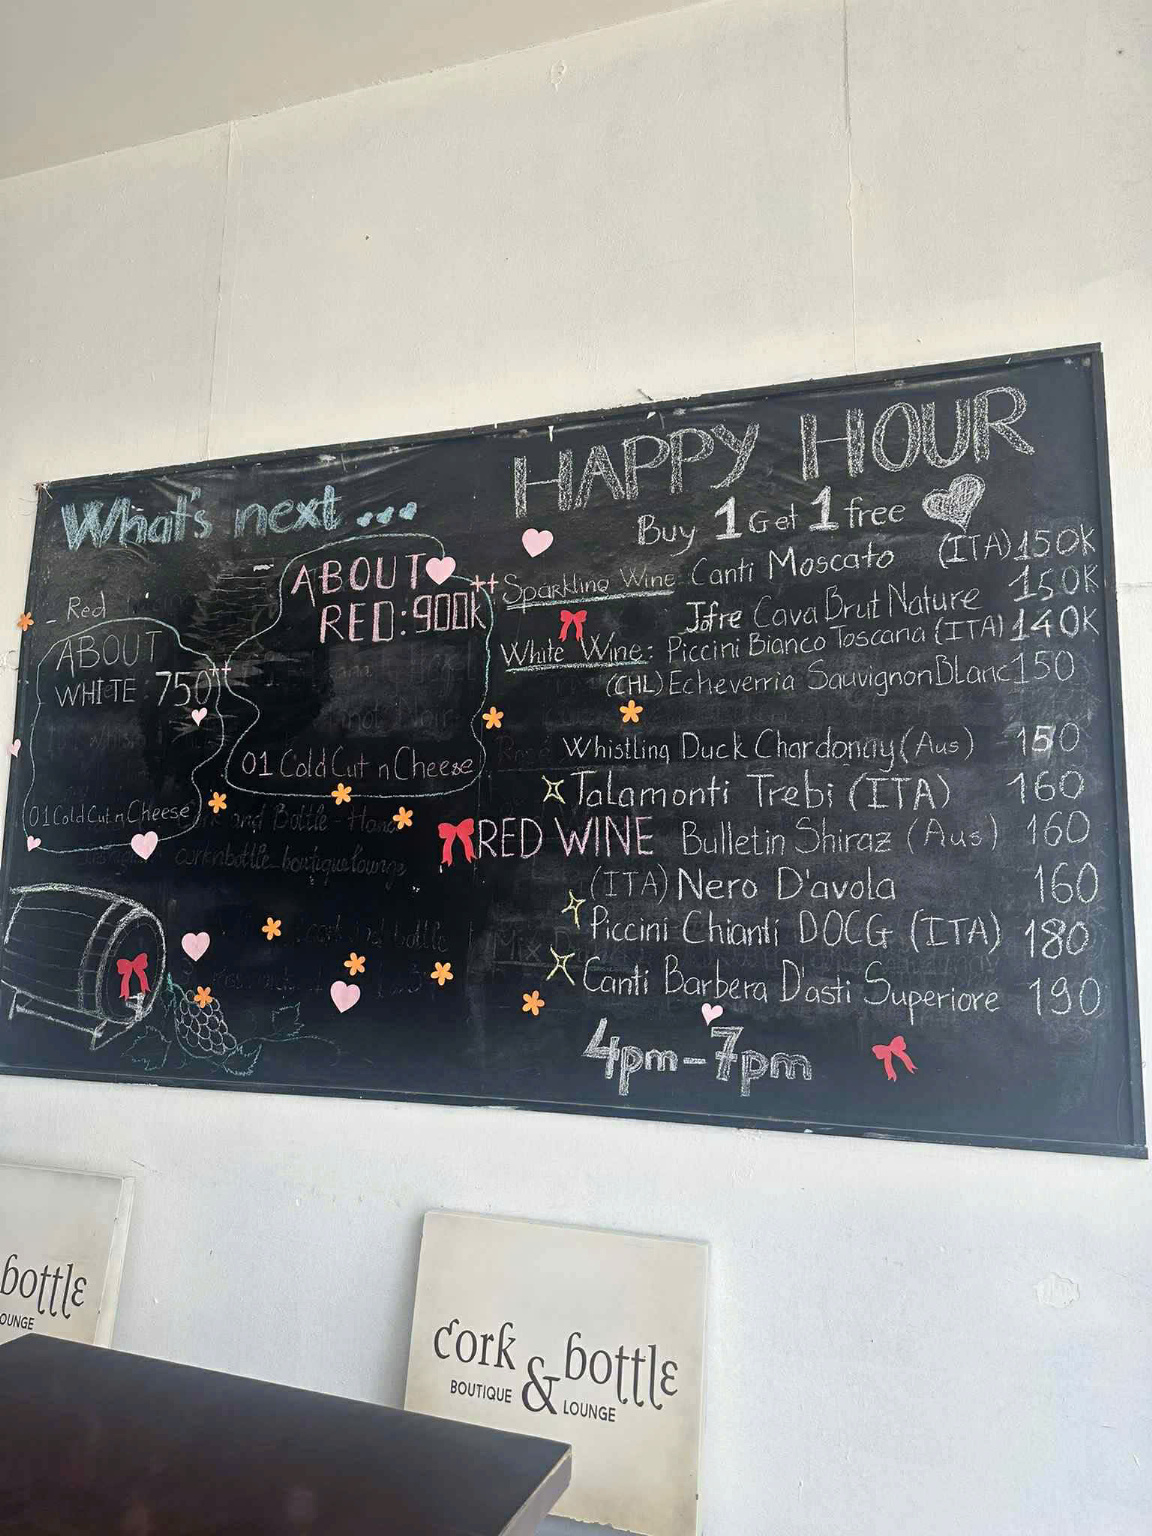 What's next...
- Red
ABOUT
WHITE: 750++
01 Cold Cut n Cheese
ABOUT
RED: 900k++
01 Cold Cut n Cheese
and Bottle - Hano
corknbottle.boutiquelounge
HAPPY HOUR
Buy 1 Get 1 free
Sparkling Wine: Canti Moscato (ITA) 150K
Jofre Cava Brut Nature 150K
White Wine: Piccini Bianco Toscana (ITA) 140K
(CHL) Echeverria Sauvignon Blanc 150
Whistling Duck Chardonay (Aus) 150
Talamonti Trebi (ITA) 160
RED WINE Bulletin Shiraz (Aus) 160
(ITA) Nero D'avola 160
Piccini Chianti DOCG (ITA) 180
Canti Barbera D'asti Superiore 190
4pm-7pm
bottle
LOUNGE
cork & bottle
BOUTIQUE LOUNGE